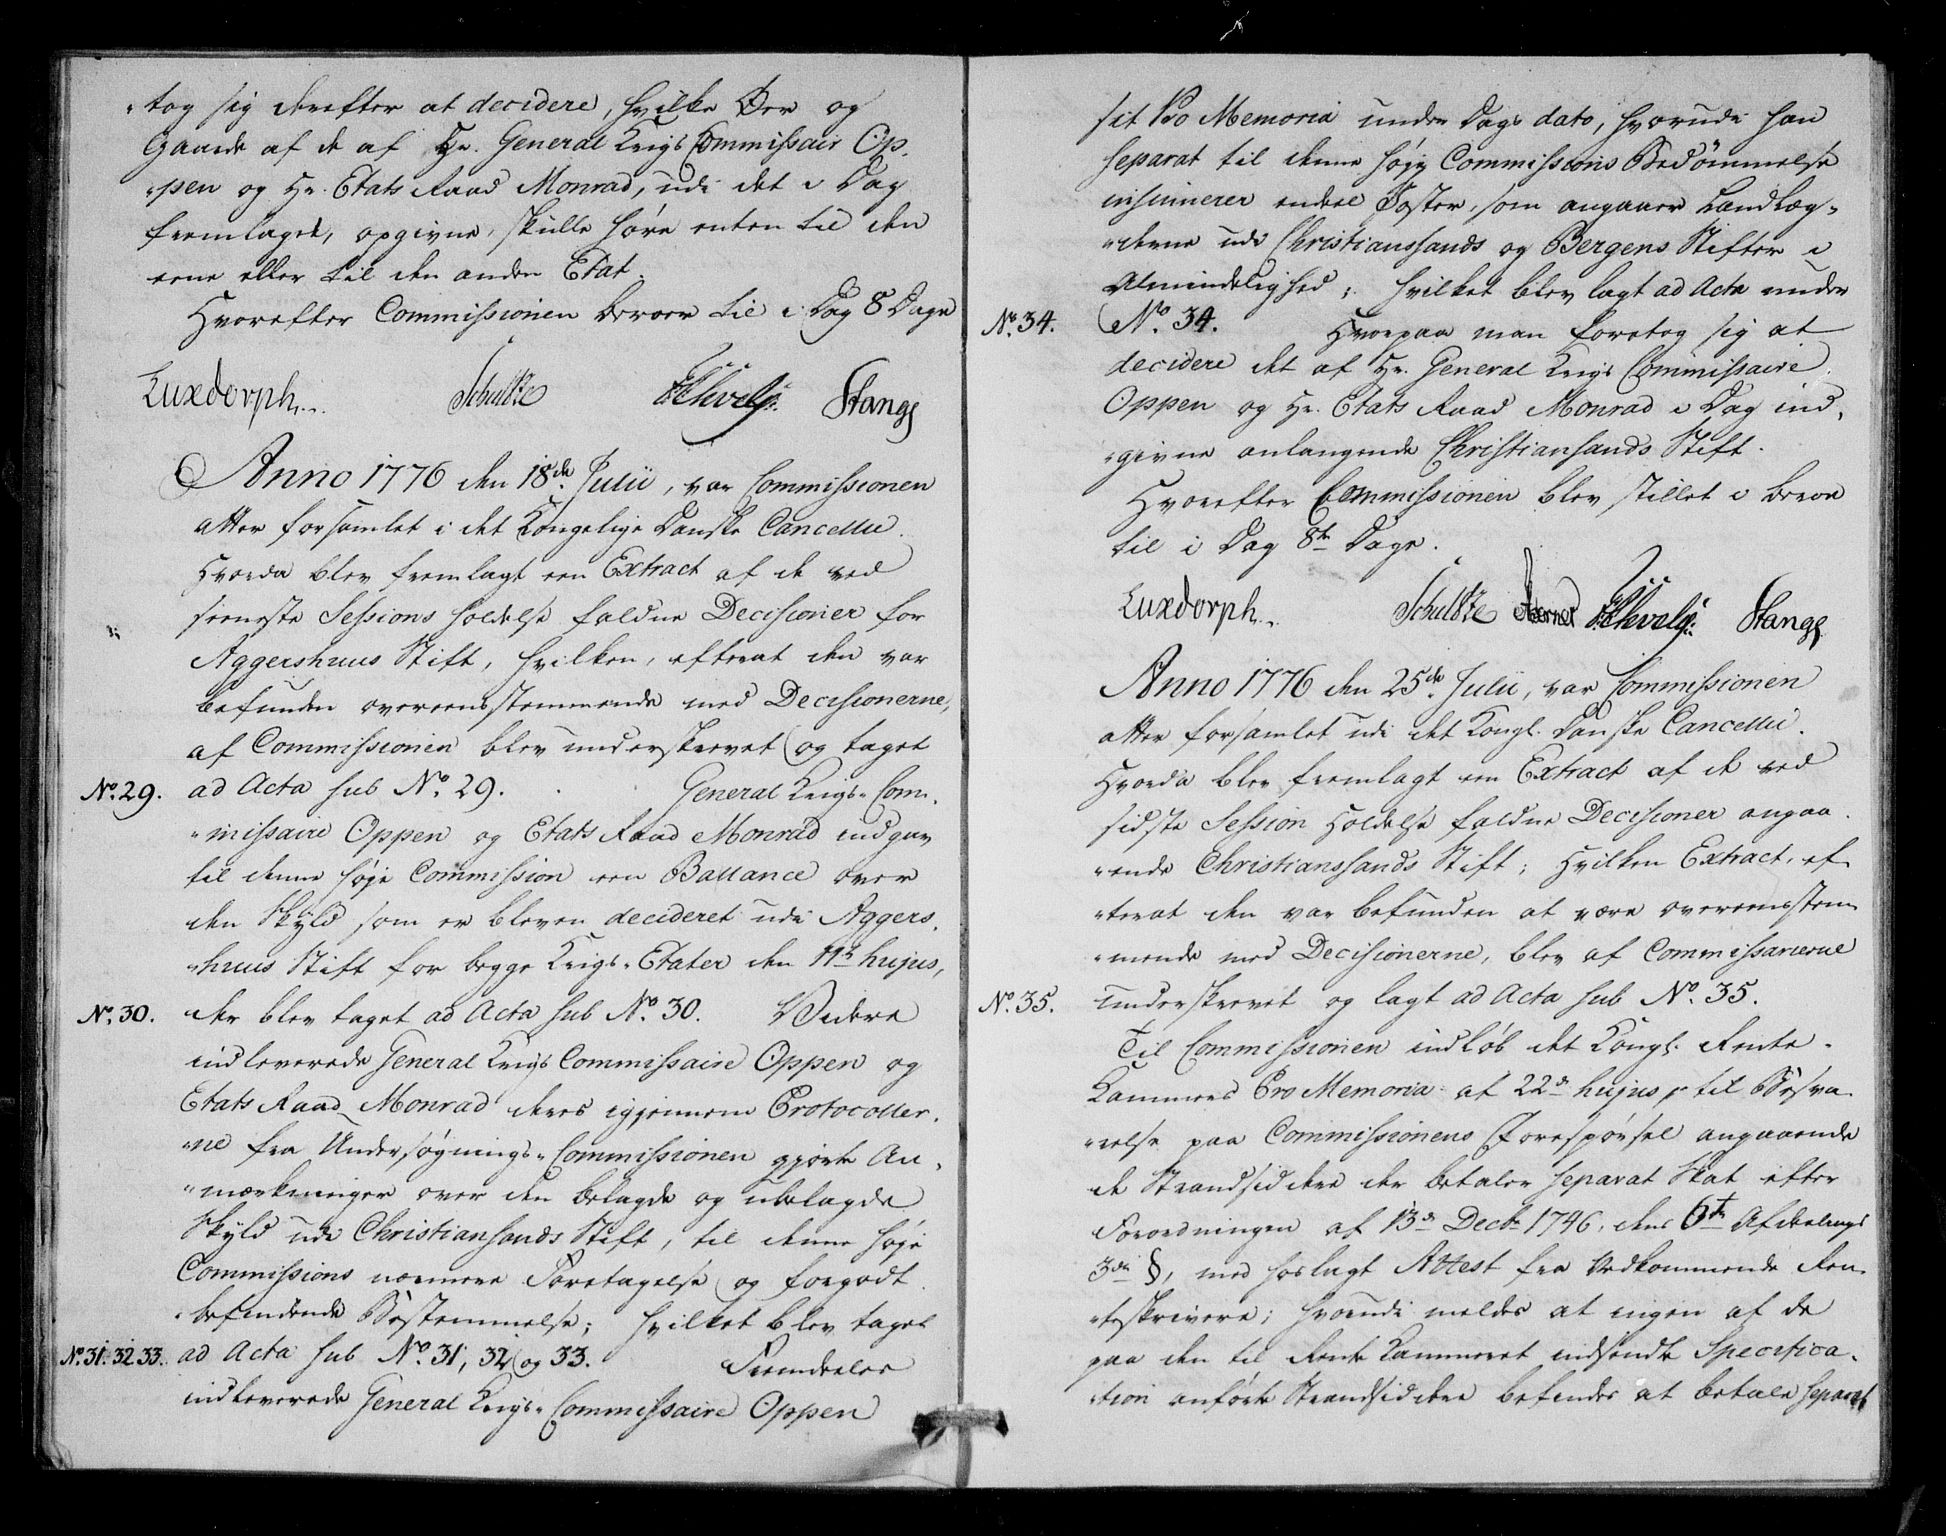 tog sig derefter at decidere, hvilke Øer og
Gaarde af de af Hr. General Krigs Commissair Op-
pen og Hr. Etats Raad Monrad, udi det i Dag
fremlagde, opgivne, skulle høre enten til den
eene eller til den anden Etat.
Hvorefter Commissionen beroer til i Dag 8 Dage
Luxdorph. Schultze Stange
Anno 1776 den 18de Julii, var Commissionen
atter forsamlet i det Kongelige Danske Cancellie.
Hvorda blev fremlagt een Extract af de ved
seeneste Sessions Holdelse faldne Decisioner for
Aggershuus Stift, hvilken, efterat den var
befunden overeensstemmende med Decisionerne,
af Commissionen blev underskrevet og taget
No. 29. ad Acta sub No. 29. General Krigs-Com-
missaire Oppen og Etats Raad Monrad indgav
til denne høje Commission een Ballance over
den Skyld som er bleven decideret udi Aggers-
huus Stift for begge Krigs-Etater den 11te hujus,
No. 30. der blev taget ad Acta sub No. 30. Videre
indleverede General Krigs Commissaire Oppen og
Etats Raad Monrad deres igjennem Protocoller-
ne fra Undersøgnings-Commissionen gjorte An-
mærkninger over den belagde og ubelagde
Skyld udi Christiansands Stift, til denne høje
Commissions nærmere Foretagelse og forgodt-
befindende Bestemmelse; hvilket blev taget
No. 31. 32. 33. ad Acta sub No. 31, 32 og 33. Fremdeeles
indleverede General Krigs-Commissaire Oppen
sit Pro Memoria under Dags dato, hvorudi han
separat til denne høje Commissions Bedömmelse
insinuerer endeel Poster, som angaaer Landlæg-
derne udi Christianssands og Bergens Stifter i
Almindelighed; hvilket blev lagt ad Acta under
No. 34. No. 34. Hvorpaa man foretog sig at
decidere det af Hr. General Krigs Commissaire
Oppen og Hr. Etats Raad Monrad i Dag ind-
givne anlangende Christiansands Stift.
Hvorefter Commissionen blev stillet i beroe
til i Dag 8te Dage.
Luxdorph. Schultze Stange
Anno 1776 den 25de Julii, var Commissionen
atter forsamlet udi det Kongl. Danske Cancellie.
Hvorda blev fremlagt een Extract af de ved
sidste Session Holdelse faldne Decisioner angaa-
ende Christianssands Stift; Hvilken Extract, ef-
terat den var befunden at være overeensstem-
mende med Decisionerne, blev af Commissarierne
No. 35. underskrevet og lagt ad Acta sub No. 35.
Til Commissionen indløb det Kongl. Rente-
Kammers Pro Memoria af 22de hujus, til Besva-
relse paa Commissionens Forespørsel angaaende
de Strandsiddere der betaler separat Skat efter
Forordningen af 13de Decbr 1746, dens 6te Afdeelings
3de §, med hoslagt Attest fra Vedkommende Ren-
teskrivere; hvorudi meldes at ingen af de
paa den til Rente Kammeret indsendte Specifica-
tion anførte Strandsiddere befindes at betale separat